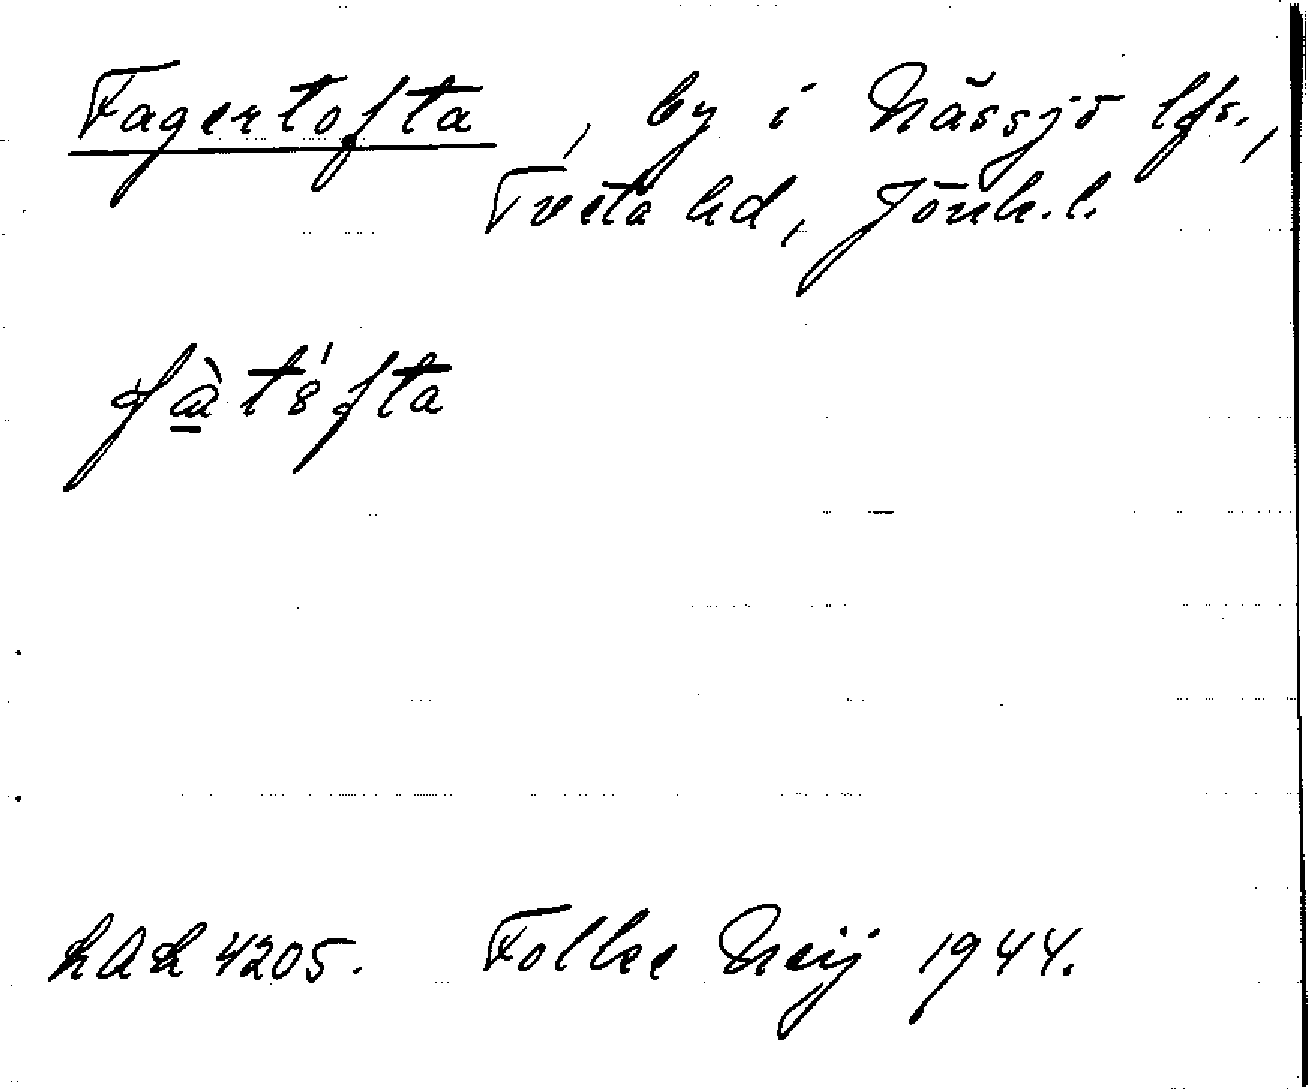 Fagertofta, by i Nässjö lfs.,
Tveta hd, Jönk. l.
fàt8́fta
LAL 4205. Folke Neij 1944.